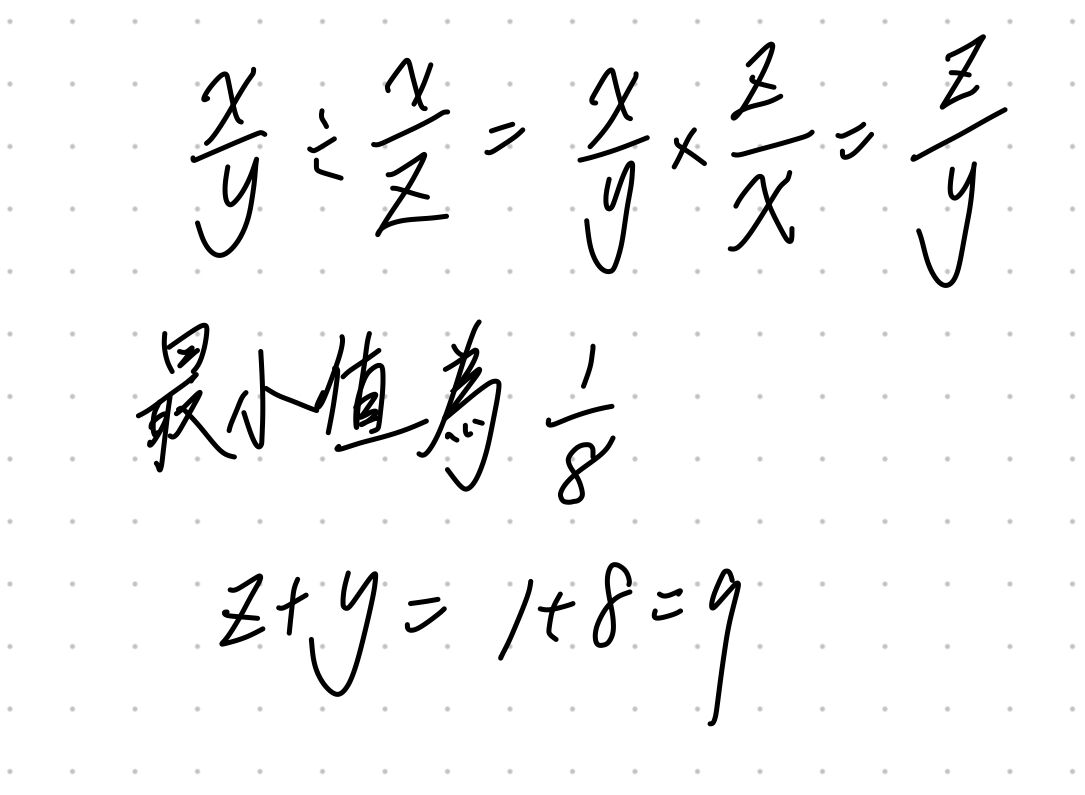 x/y ÷ x/z = x/y × z/x = z/y
最小值為 1/8
z+y = 1+8=9